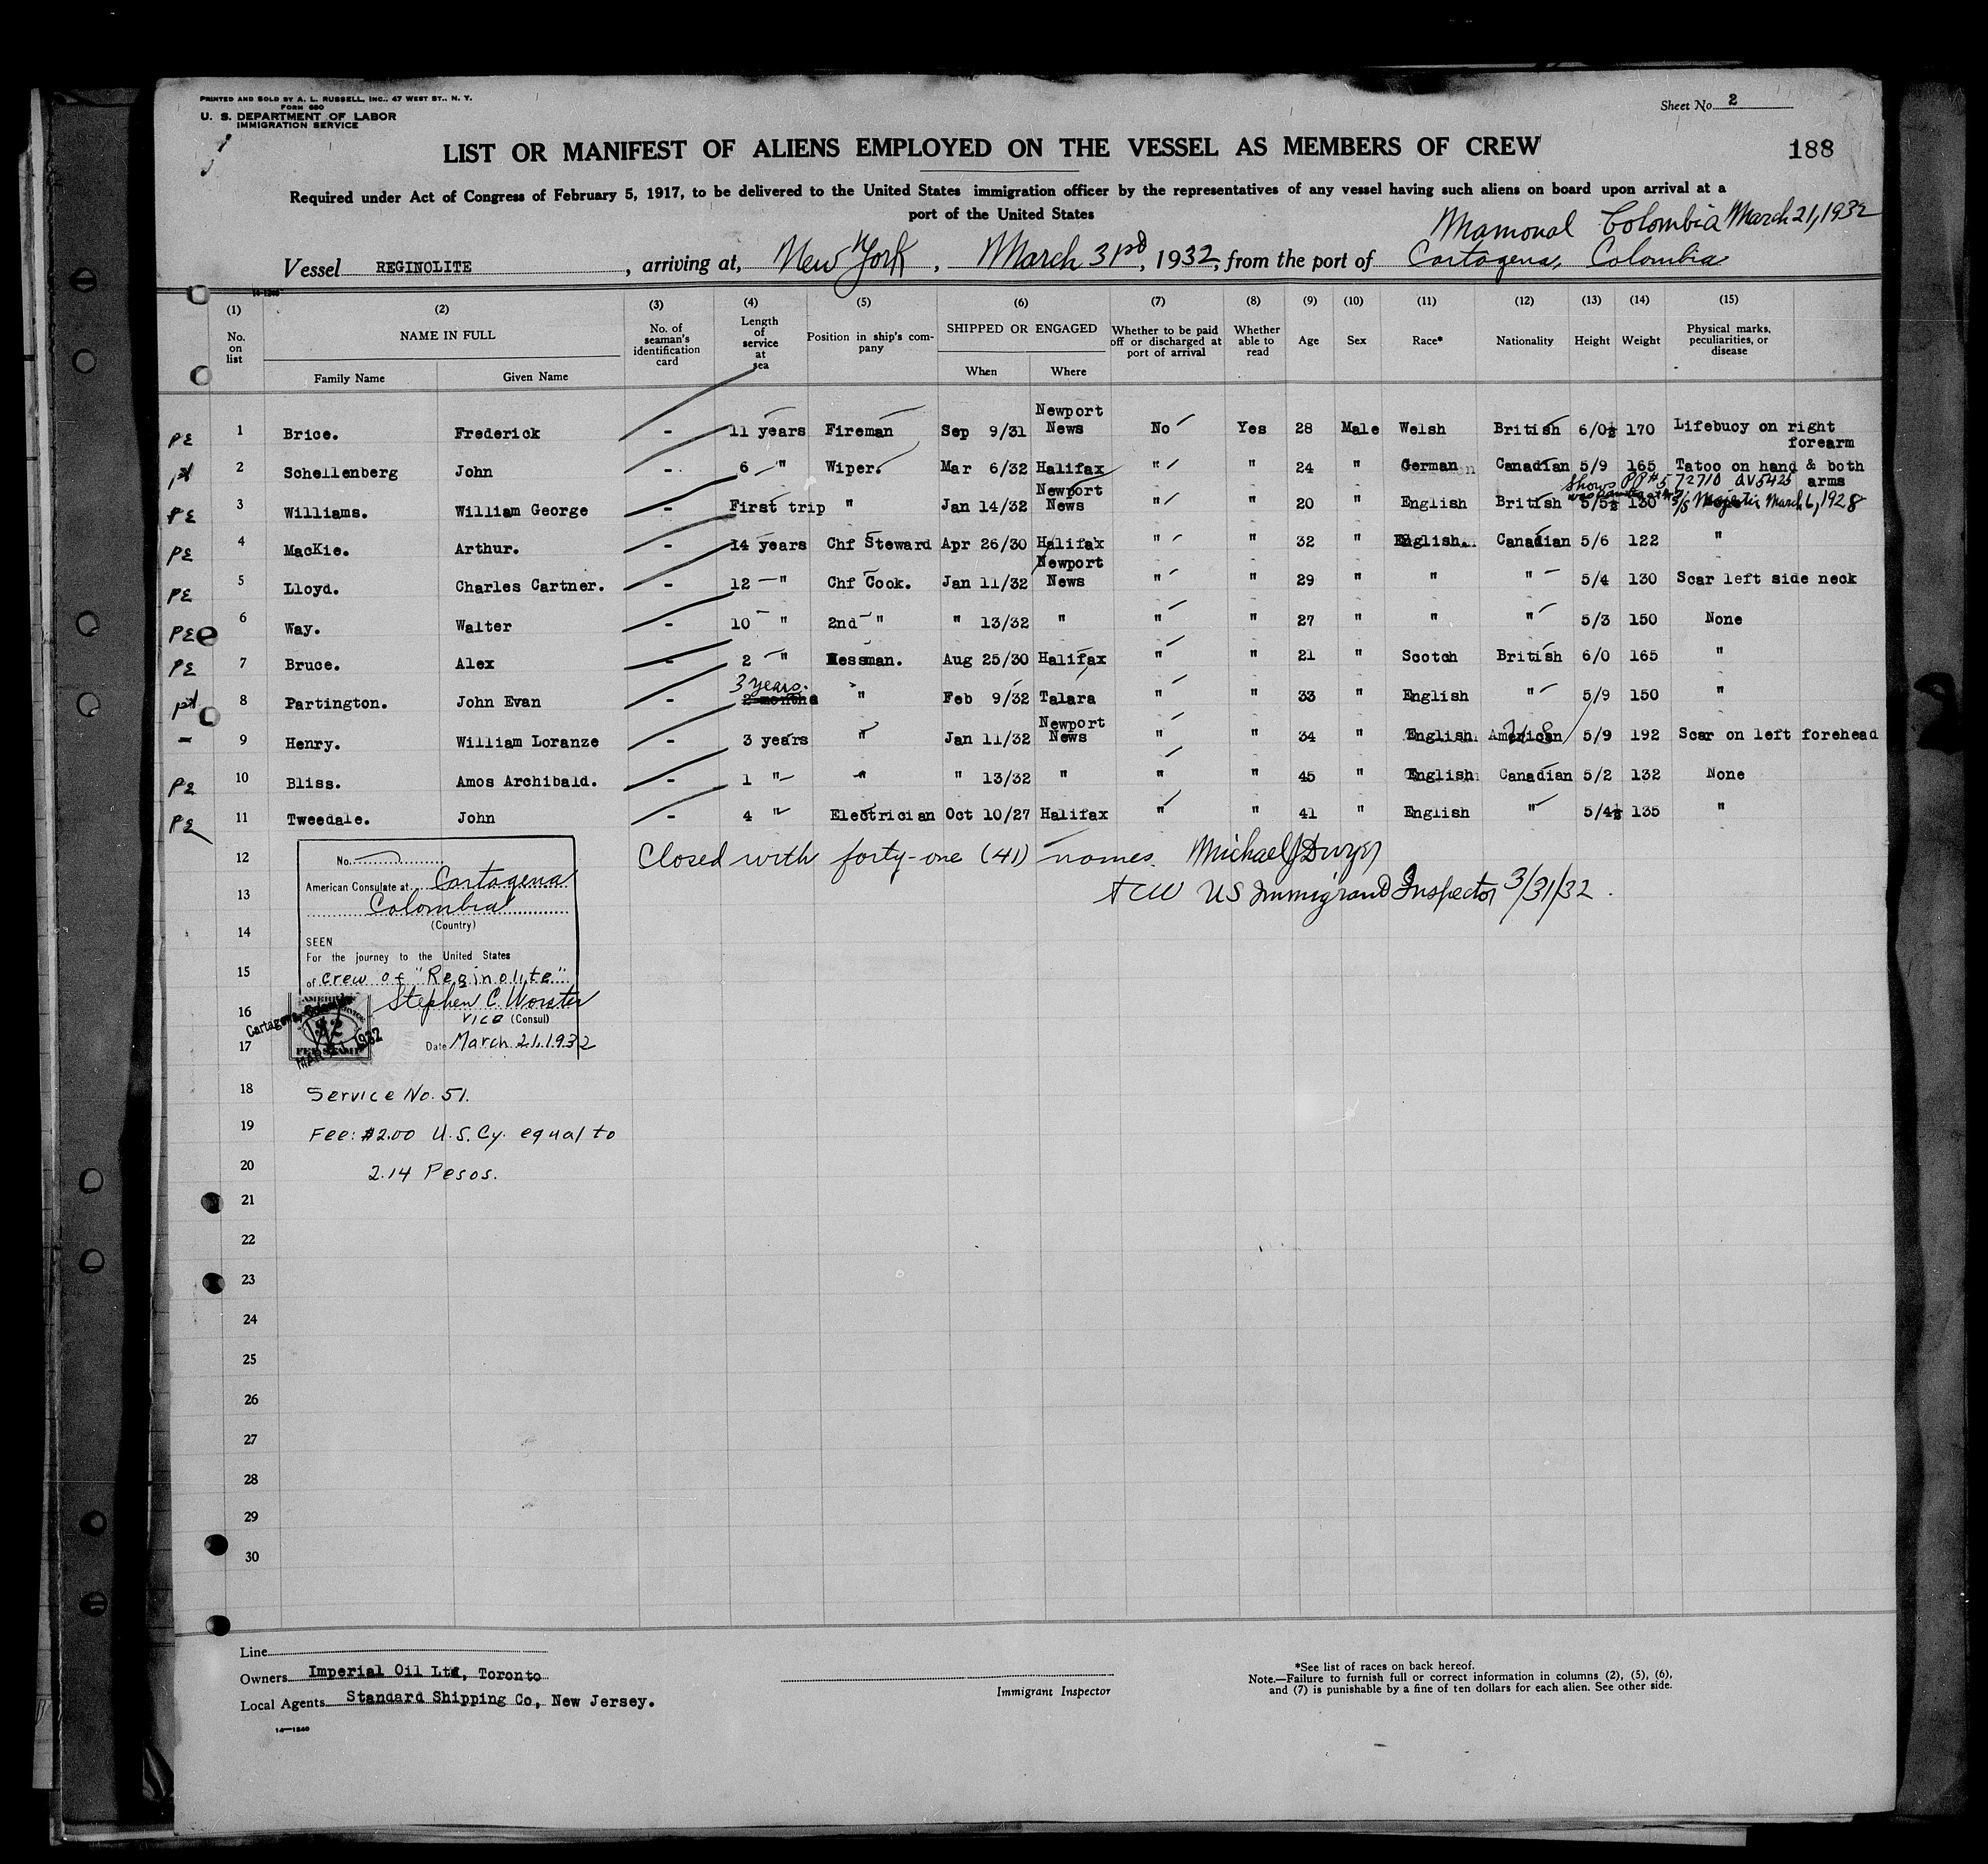 PRINTED AND SOLD BY A. L. RUSSELL, INC., 47 WEST ST., N. Y.
FORM 680
U. S. DEPARTMENT OF LABOR
IMMIGRATION SERVICE
Sheet No. 2
LIST OR MANIFEST OF ALIENS EMPLOYED ON THE VESSEL AS MEMBERS OF CREW
188
Required under Act of Congress of February 5, 1917, to be delivered to the United States immigration officer by the representatives of any vessel having such aliens on board upon arrival at a
port of the United States
Mamonal Colombia March 21, 1932
Vessel REGINOLITE, arriving at, New York, March 31rd, 1932, from the port of Cartagena, Colombia
14-1240
(1) (2) (3) (4) (5) (6) (7) (8) (9) (10) (11) (12) (13) (14) (15)
No. on list
NAME IN FULL
Family Name Given Name
No. of seaman's identification card
Length of service at sea
Position in ship's company
SHIPPED OR ENGAGED
When Where
Whether to be paid off or discharged at port of arrival
Whether able to read
Age
Sex
Race*
Nationality
Height
Weight
Physical marks, peculiarities, or disease
PE 1 Brice. Frederick - 11 years Fireman Sep 9/31 Newport News No Yes 28 Male Welsh British 6/0½ 170 Lifebuoy on right forearm
2 Schellenberg John - 6 " Wiper. Mar 6/32 Halifax " " 24 " German Canadian 5/9 165 Tatoo on hand & both arms
Shows PP# 572710 QV5425
PE 3 Williams. William George - First trip " Jan 14/32 Newport News " " 20 " English British 5/5½ 130 S/S Majestic March 6, 1928
PE 4 MacKie. Arthur. - 14 years Chf Steward Apr 26/30 Halifax " " 32 " English. Canadian 5/6 122 "
PE 5 Lloyd. Charles Cartner. - 12 " Chf Cook. Jan 11/32 Newport News " " 29 " " " 5/4 130 Scar left side neck
PE 6 Way. Walter - 10 " 2nd " " 13/32 " " " 27 " " " 5/3 150 None
PE 7 Bruce. Alex - 2 " Messman. Aug 25/30 Halifax " " 21 " Scotch British 6/0 165 "
8 Partington. John Evan - 3 years. 2 months " Feb 9/32 Talara " " 33 " English " 5/9 150 "
- 9 Henry. William Loranze - 3 years " Jan 11/32 Newport News " " 34 " English American U S 5/9 192 Scar on left forehead
PE 10 Bliss. Amos Archibald. - 1 " " " 13/32 " " " 45 " English Canadian 5/2 132 None
PE 11 Tweedale. John - 4 " Electrician Oct 10/27 Halifax " " 41 " English " 5/4½ 135 "
12 Closed with forty-one (41) names. Michael J Dwyer
13 US Immigrant Inspector 3/31/32.
No.
American Consulate at Cartagena
Colombia
(Country)
14
SEEN
For the journey to the United States
15
of crew of "Reginolite"
Stephen C. Worster
16
Vice (Consul)
17
Date March 21, 1932
18 Service No. 51.
19 Fee: $2.00 U.S. Cy. equal to
20 2.14 Pesos.
21
22
23
24
25
26
27
28
29
30
Line
Owners Imperial Oil Ltd, Toronto
Local Agents Standard Shipping Co, New Jersey.
14-1240
Immigrant Inspector
*See list of races on back hereof.
Note.—Failure to furnish full or correct information in columns (2), (5), (6),
and (7) is punishable by a fine of ten dollars for each alien. See other side.